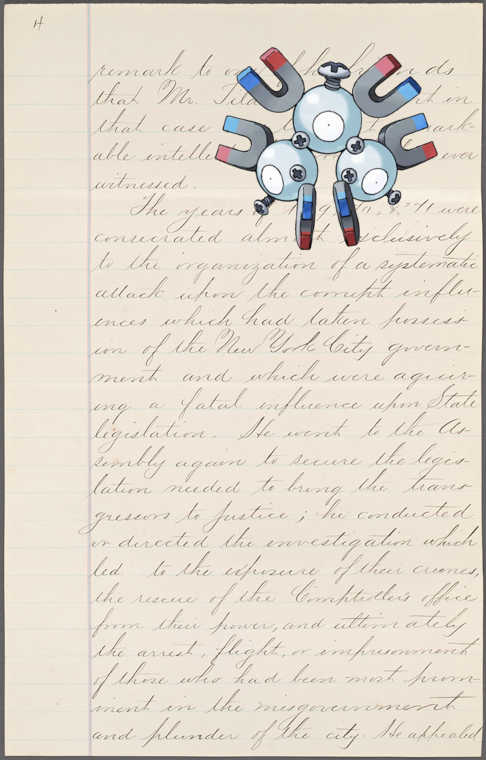 4
remark to
that Mr.
that case
able ever
witnessed.
The years were
consecrated almost exclusively
to the organization of a systematic
attack upon the corrupt influ-
ences which had taken possess
ion of the New York City govern-
ment and which were acquir-
ing a fatal influence upon State
legislation. He went to the As-
sembly again to secure the legis-
lation needed to bring the trans-
gressors to justice; he conducted
or directed the investigation which
led to the exposure of their crimes,
the rescue of the Comptroller's office
from their power, and ultimately
the arrest, flight, or imprisonment
of those who had been most prom-
inent in the misgovernment
and plunder of the city. He appealed